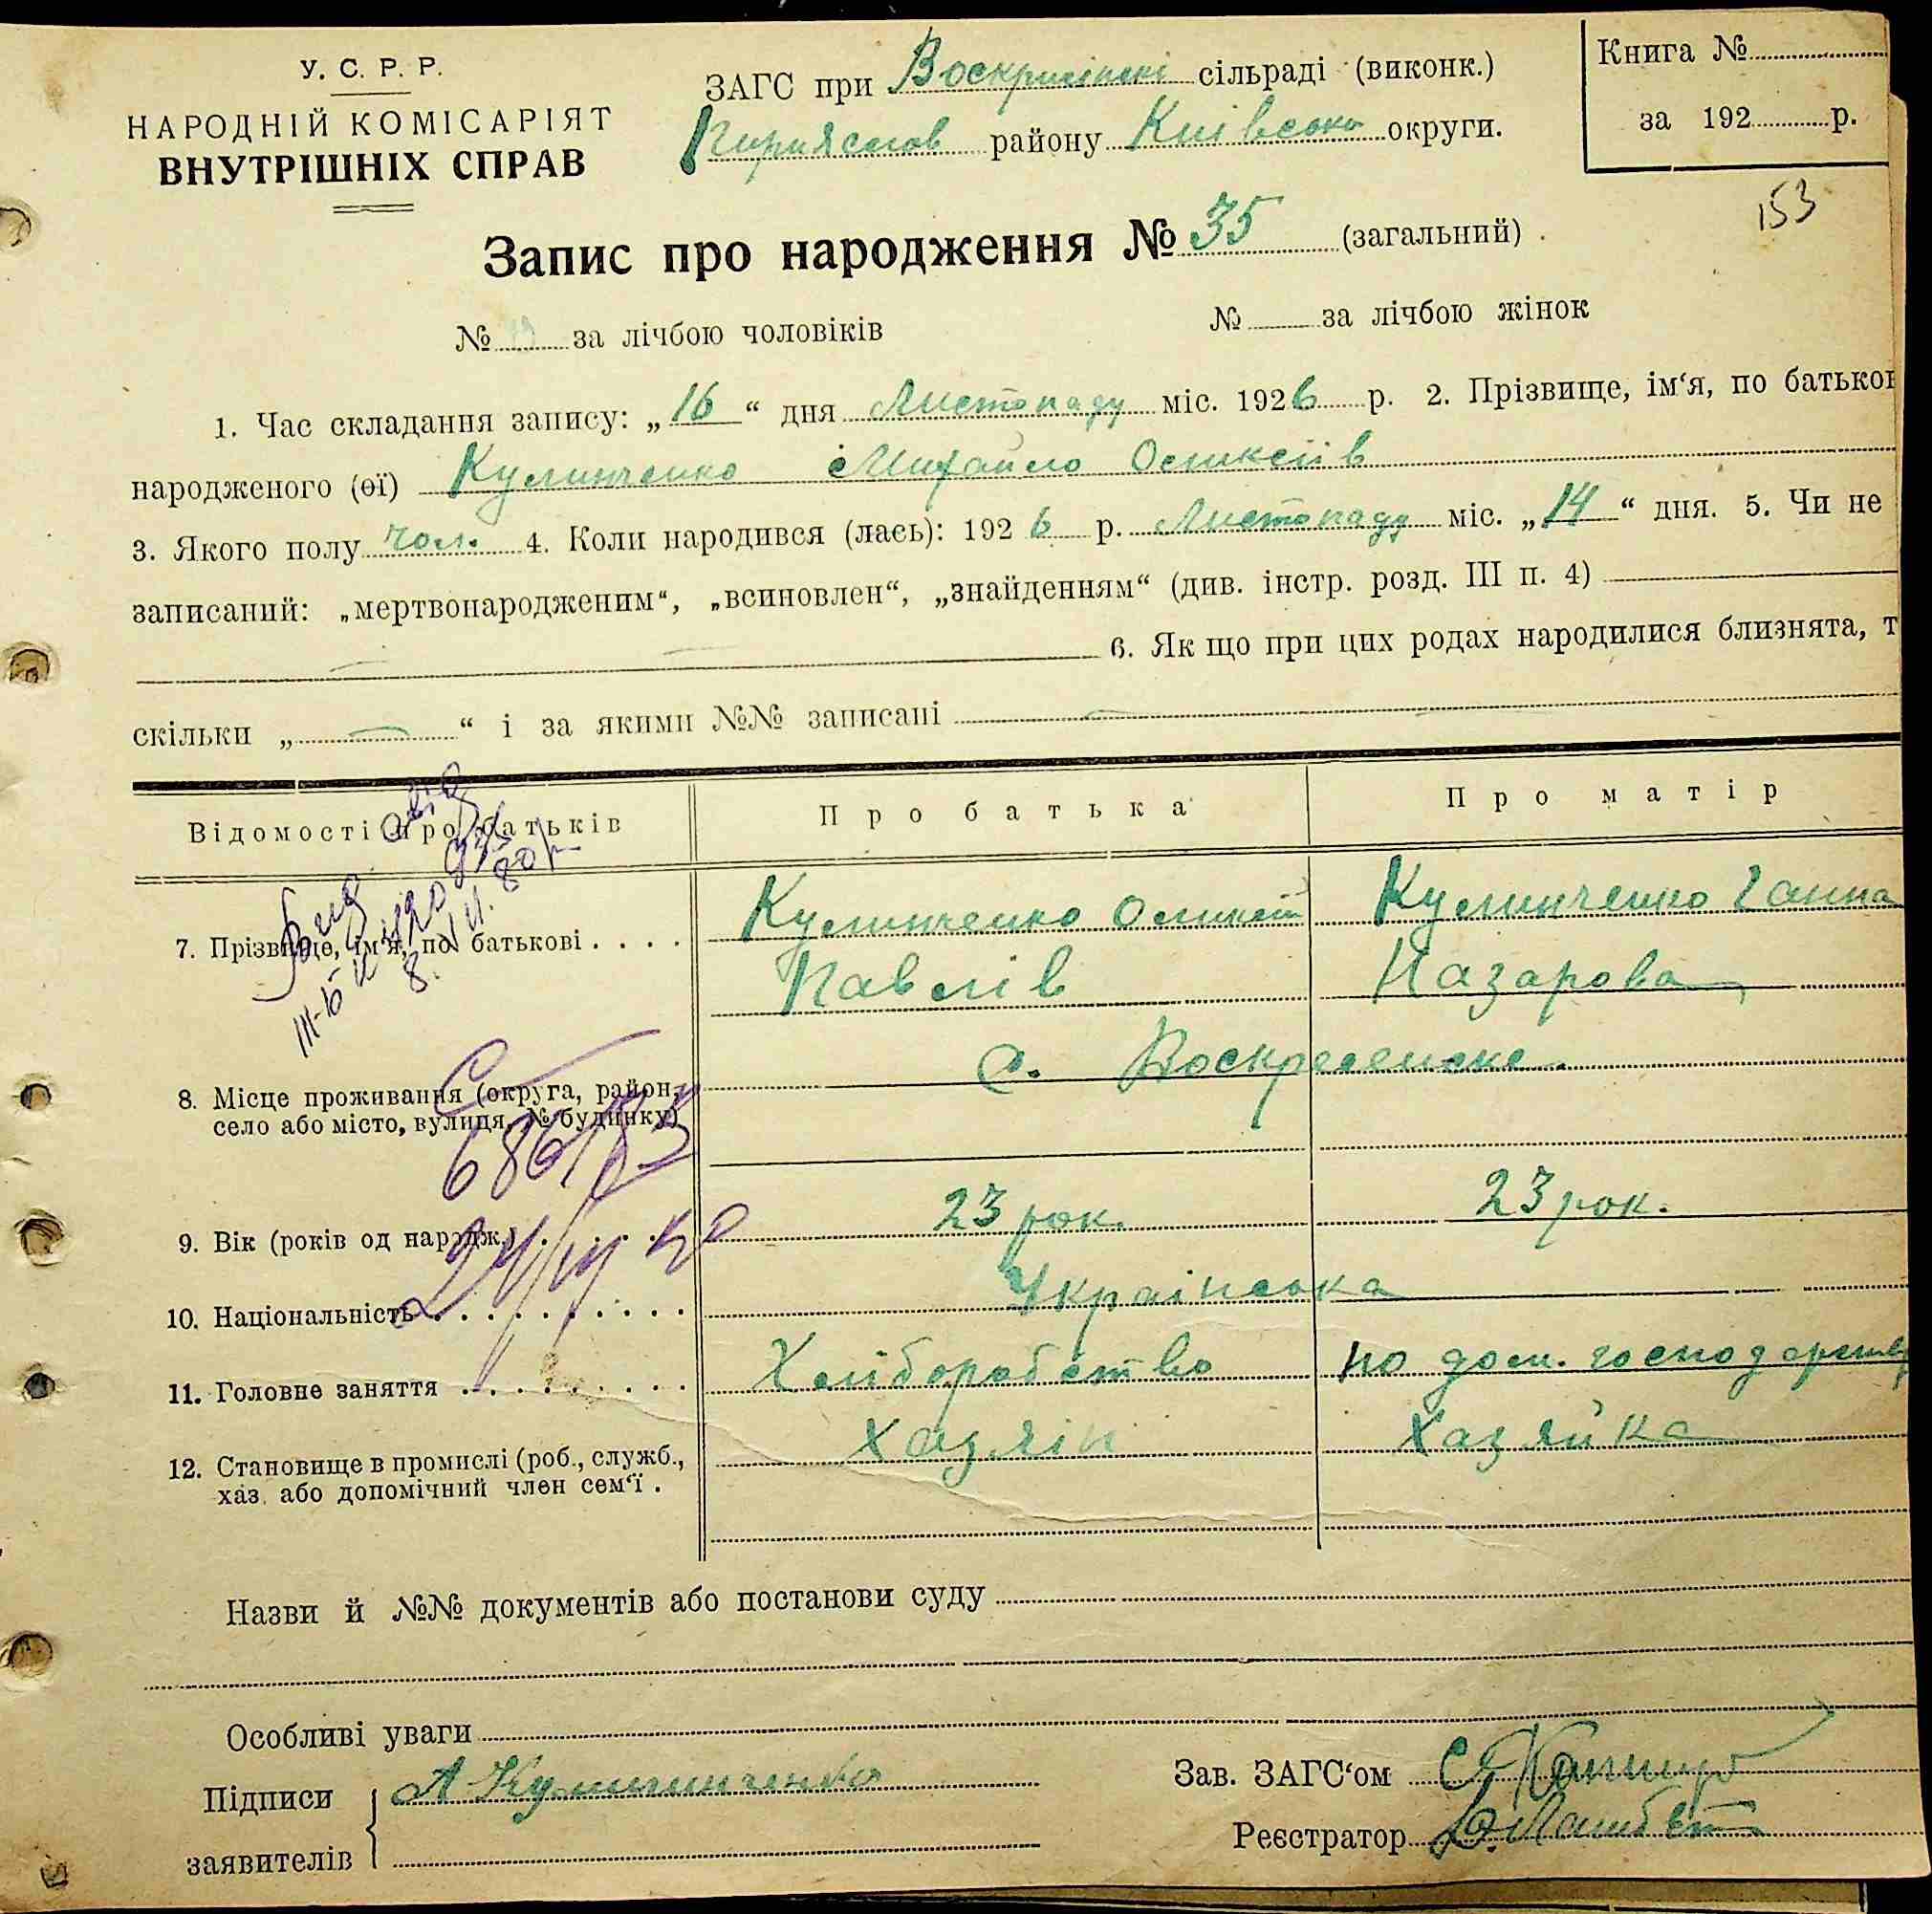 У. С. Р. Р.
НАРОДНІЙ КОМІСАРІЯТ
ВНУТРІШНІХ СПРАВ
ЗАГС при сільраді (виконк.)
району Київсько округи.
Книга №
за 192 р.
153
Запис про народження № 35 (загальний)
№ за лічбою чоловіків
№ за лічбою жінок
1. Час складання запису: „16“ дня Листопаду міс. 1926 р. 2. Прізвище, ім‘я, по батьков
народженого (ої) Кулинченко Михайло Олексіїв
3. Якого полу чол. 4. Коли народився (лась): 1926 р. Листопаду міс. „14“ дня. 5. Чи не
записаний: „мертвонародженим“, „всиновлен“, „знайденням“ (див. інстр. розд. III п. 4)
6. Як що при цих родах народилися близнята, т
скільки „ — “ і за якими №№ записані —
Відомості про батьків
Про батька
Про матір
7. Прізвище, ім‘я, по батькові . . . .
Кулинченко Олексій
Павлів
Кулинченко Ганна
Назарова
8. Місце проживання (округа, район,
село або місто, вулиця, № будинку)
с. Воскресенске.
9. Вік (років од народж.) . . . . .
23 рок.
23 рок.
10. Національність . . . . . . . . . .
Українська
11. Головне заняття . . . . . . . . .
Хліборобство
по дом. господарству
12. Становище в промислі (роб., служб.,
хаз. або допомічний член сем‘ї .
Хазяїн
Хазяйка
Назви й №№ документів або постанови суду
Особливі уваги
Підписи
заявителів
А Кулинченко
Зав. ЗАГС‘ом
Реєстратор